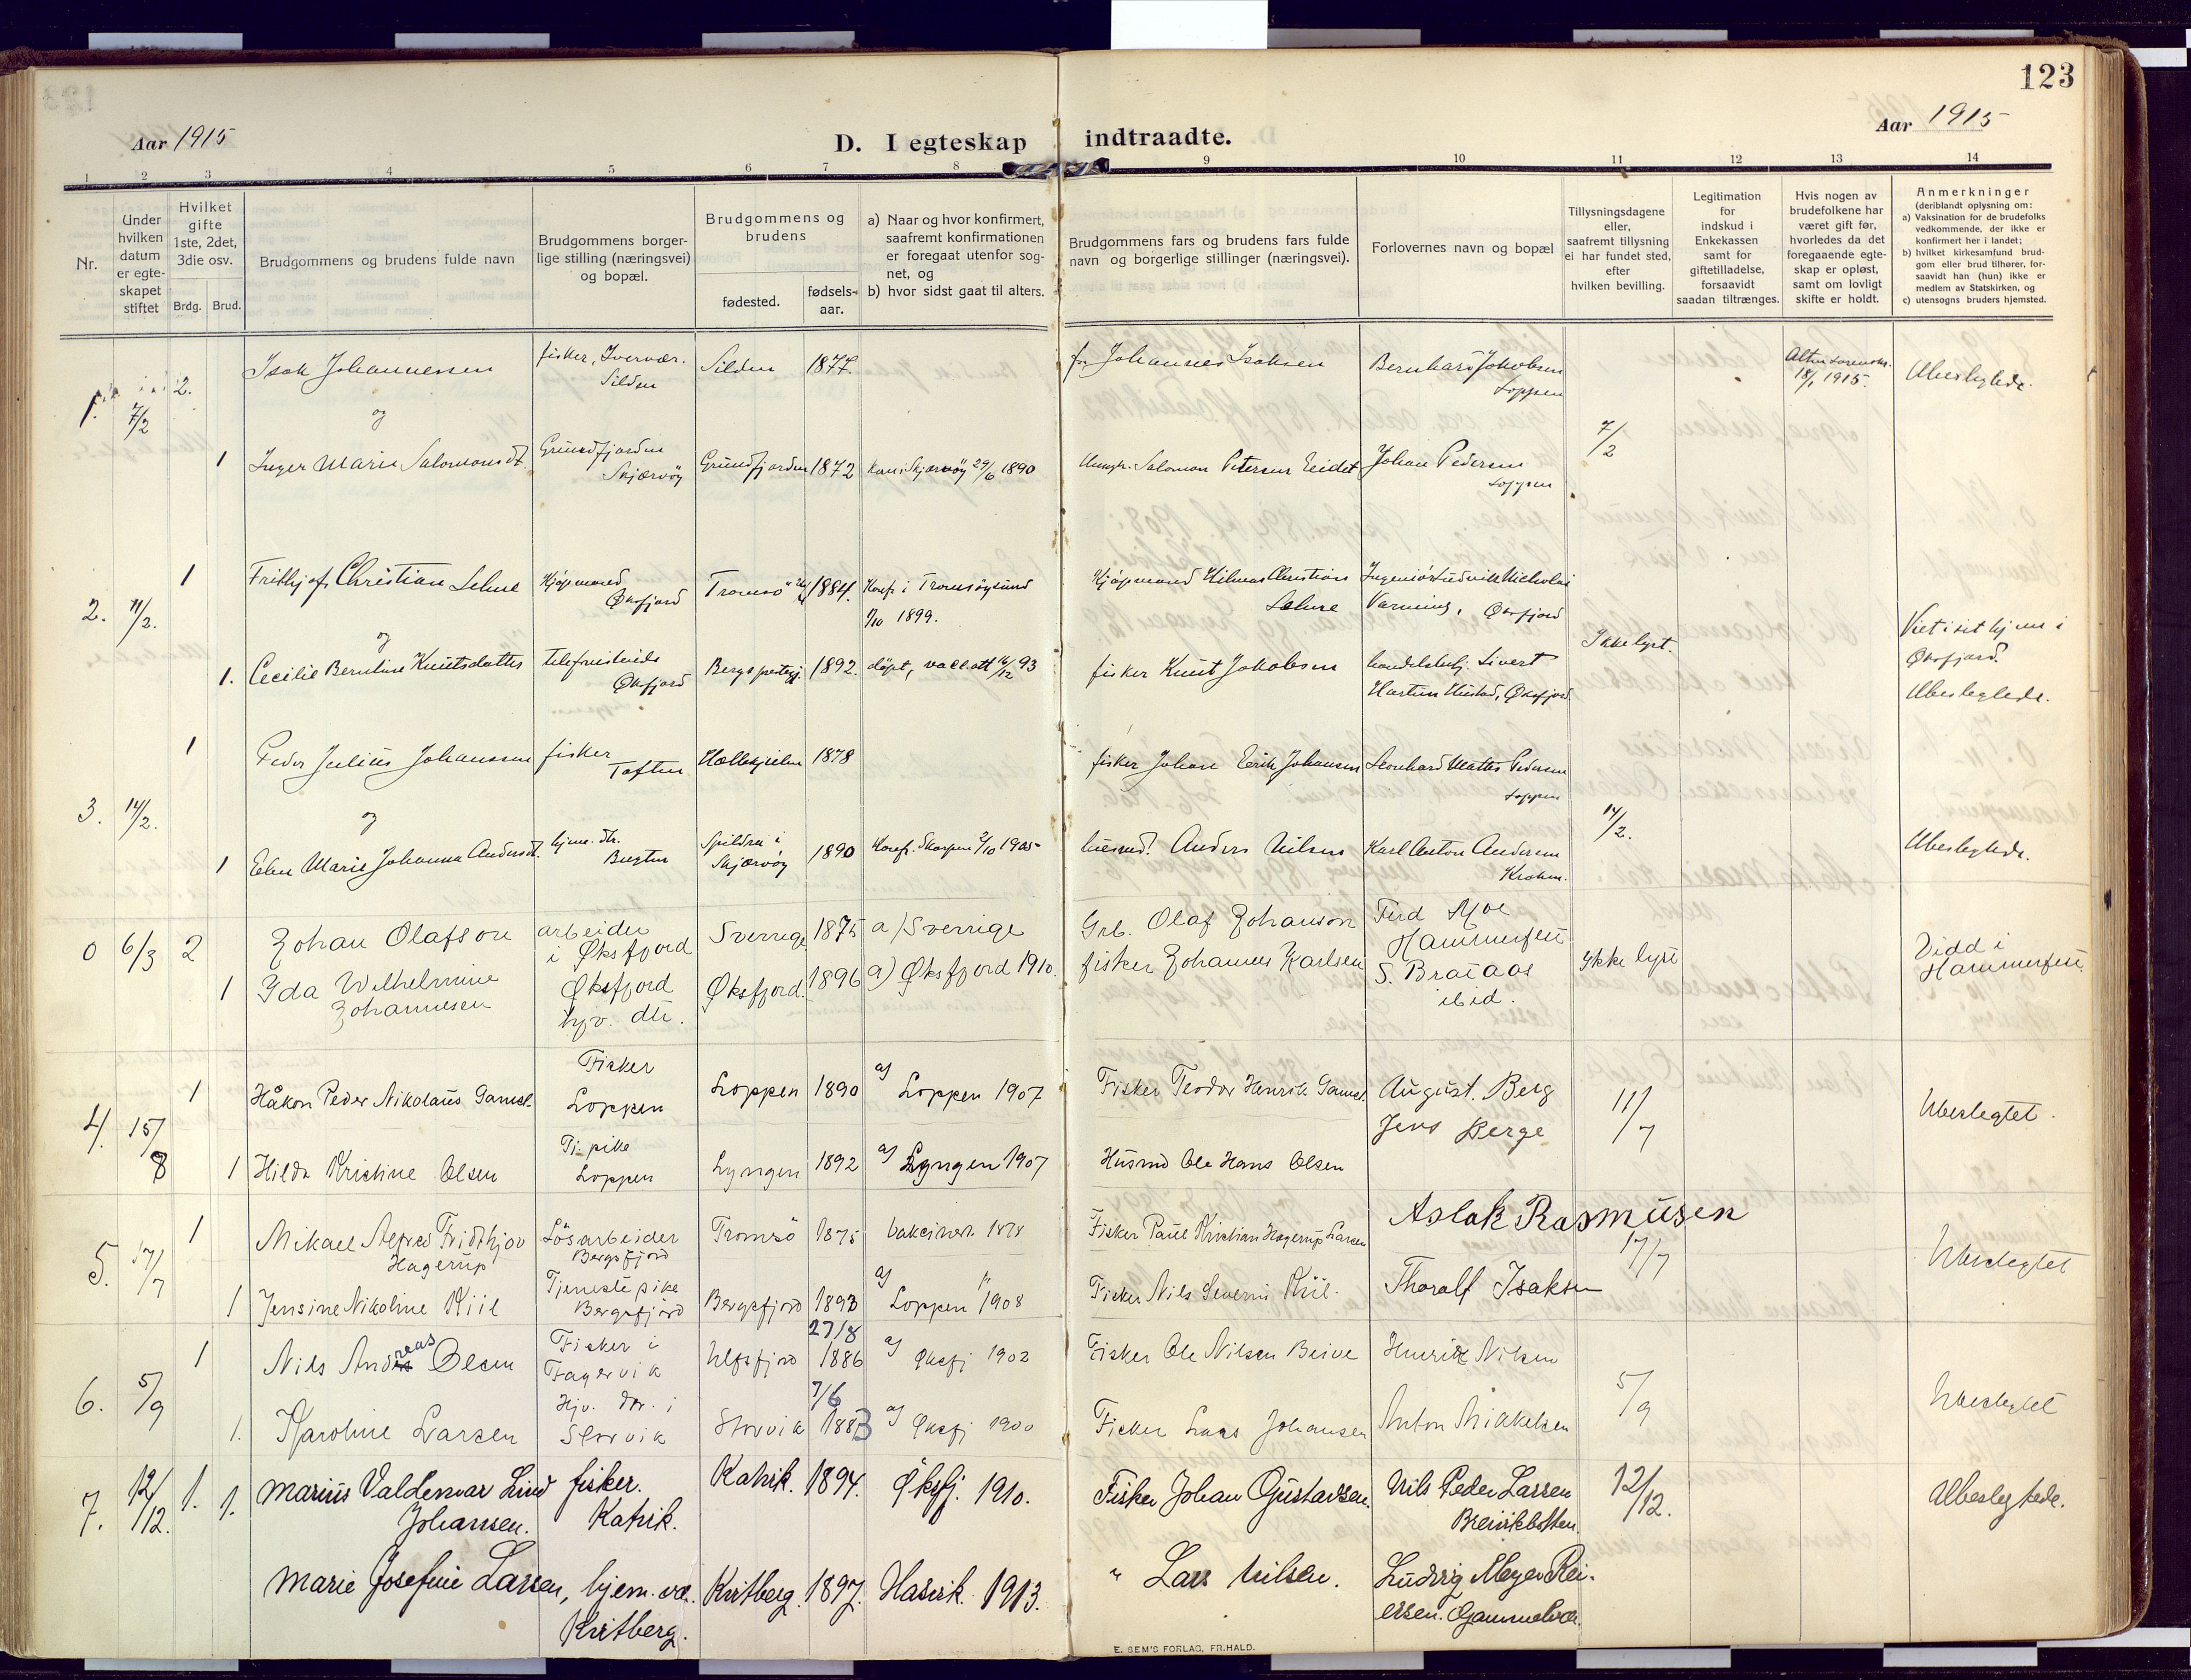 123
Aar 1915
D. I egteskap indtraadte.
Aar 1915
1 2 3 4 5 6 7 8 9 10 11 12 13 14
Nr.
Under hvilken datum er egteskapet stiftet
Hvilket gifte 1ste, 2det, 3die osv.
Brdg. Brud.
Brudgommens og brudens fulde navn
Brudgommens borgerlige stilling (næringsvei) og bopæl.
Brudgommens og brudens
fødested.
fødselsaar.
a) Naar og hvor konfirmert, saafremt konfirmationen er foregaat utenfor sognet, og
b) hvor sidst gaat til alters.
Brudgommens fars og brudens fars fulde navn og borgerlige stillinger (næringsvei).
Forlovernes navn og bopæl
Tillysningsdagene eller, saafremt tillysning ei har fundet sted, efter hvilken bevilling.
Legitimation for indskud i Enkekassen samt for giftetilladelse, forsaavidt saadan tiltrænges.
Hvis nogen av brudefolkene har været gift før, hvorledes da det foregaaende egteskap er opløst, samt om lovligt skifte er holdt.
Anmerkninger (deriblandt oplysning om:
a) Vaksination for de brudefolks vedkommende, der ikke er konfirmert her i landet;
b) hvilket kirkesamfund brudgom eller brud tilhører, forsaavidt han (hun) ikke er medlem av Statskirken, og
c) utensogns bruders hjemsted.
1. 7/2 2. Isak Johannessen fisker, Silden Silden 1877. Johannes Isaksen Bernhard Jakobsen Loppen 18/1 1915. Ubeslegtede.
og
1 Inger Marie Salomonsdt. Grundfjorden Skjærvöy Grundfjorden 1872 Skjærvöy 29/6 1890 Salomon Petersen Eidet Johan Pedersen Loppen 7/2
2. 11/2. 1 Frithjof Christian Lehne Kjöpmand Øksfjord Tromsö 1884. Konf. i Tromsöysund 1/10 1899. Kjöpmand Hilmar Christian Lehne Ingeniör Ludvik Nicholai Varming, Øksfjord
og
1. Cecilie Berntine Knutsdatter Øksfjord 1892. döpt, vacc. att 16/12 93 fisker Knut Jakobsen Sivert Martin Hustad, Øksfjord Ikke lyst. Viet i sit hjem i Øksfjord. Ubeslegtede.
3. 14/2. 1 Peder Julius Johansen fisker Toften 1878 fisker Johan Erik Johansen Leonhard Mattis Pedersen Loppen 14/2.
og
1 Elen Marie Johanna Andersdt. hjme. dtr. Spildra i Skjærvöy 1890 Konf. Skorpen 2/10 1905 Anders Nilsen Karl Anton Andersen Ubeslegtede.
0 6/3 2 Johan Olafson arbeider i Øksfjord Sverrige 1875 a) Sverrige Grb. Olaf Johanson Ferd Moe Hammerfest
1 Ida Wilhelmine Johannesen Øksfjord hjv. dtr. Øksfjord. 1896 a) Øksfjord 1910. fisker Johannes Karlsen S. Brataas ibid. Ikke lyst Vidd i Hammerfest.
4. 15/8 1 Håkon Peder Nikolaus Gamst Fisker Loppen Loppen 1890 a) Loppen 1907 Fisker Teodor Henrik Gamst August. Berg Jens Berge 11/7 Ubeslegtet.
1 Hilda Kristine Olsen Tj. pike Loppen Lyngen 1892 a) Lyngen 1907 Husmd Ole Hans Olsen
5. 17/7 1 Mikael Alfred Fridthjov Hagerup Lösarbeider Bergsfjord Tromsö 1875 Vakciner. 1878 Fisker Paul Kristian Hagerup Larsen Aslak Rasmusen 17/7 Ubeslegtet
1 Jensine Nikoline Kiil Tjenestepike Bergsfjord Bergsfjord 1893 a) Loppen 1908 Fisker Nils Severin Kiil. Thoralf Isaksen
6. 5/9 1 Nils Andreas Olsen Fisker i Fagervik Ulfsfjord 27/8 1886 a) Øksfj 1902 Fisker Ole Nilsen Beive Henrik Nilsen 5/9 Ubeslegtet
1. Karoline Larsen Hjv. dtr. i Storvik Storvik 7/6 1883 a) Øksfj 1900 Fisker Lars Johansen Anton Mikkelsen
7. 12/12. 1. 1. Marius Valdemar Lind Johansen. fisker. Katvik. Katvik. 1894. Øksfj. 1910. Fisker Johan Gustavsen. Nils Peder Larsen Breivikbotten. 12/12. Ubeslegtede.
Marie Josefine Larsen, hjem. vær. Kvitberg. Kvitberg. 1897. Hasvik. 1913. " Lars Nilsen. Ludvig Meyer Reiersen. Gammelvær.
E. SEM'S FORLAG, FR.HALD.